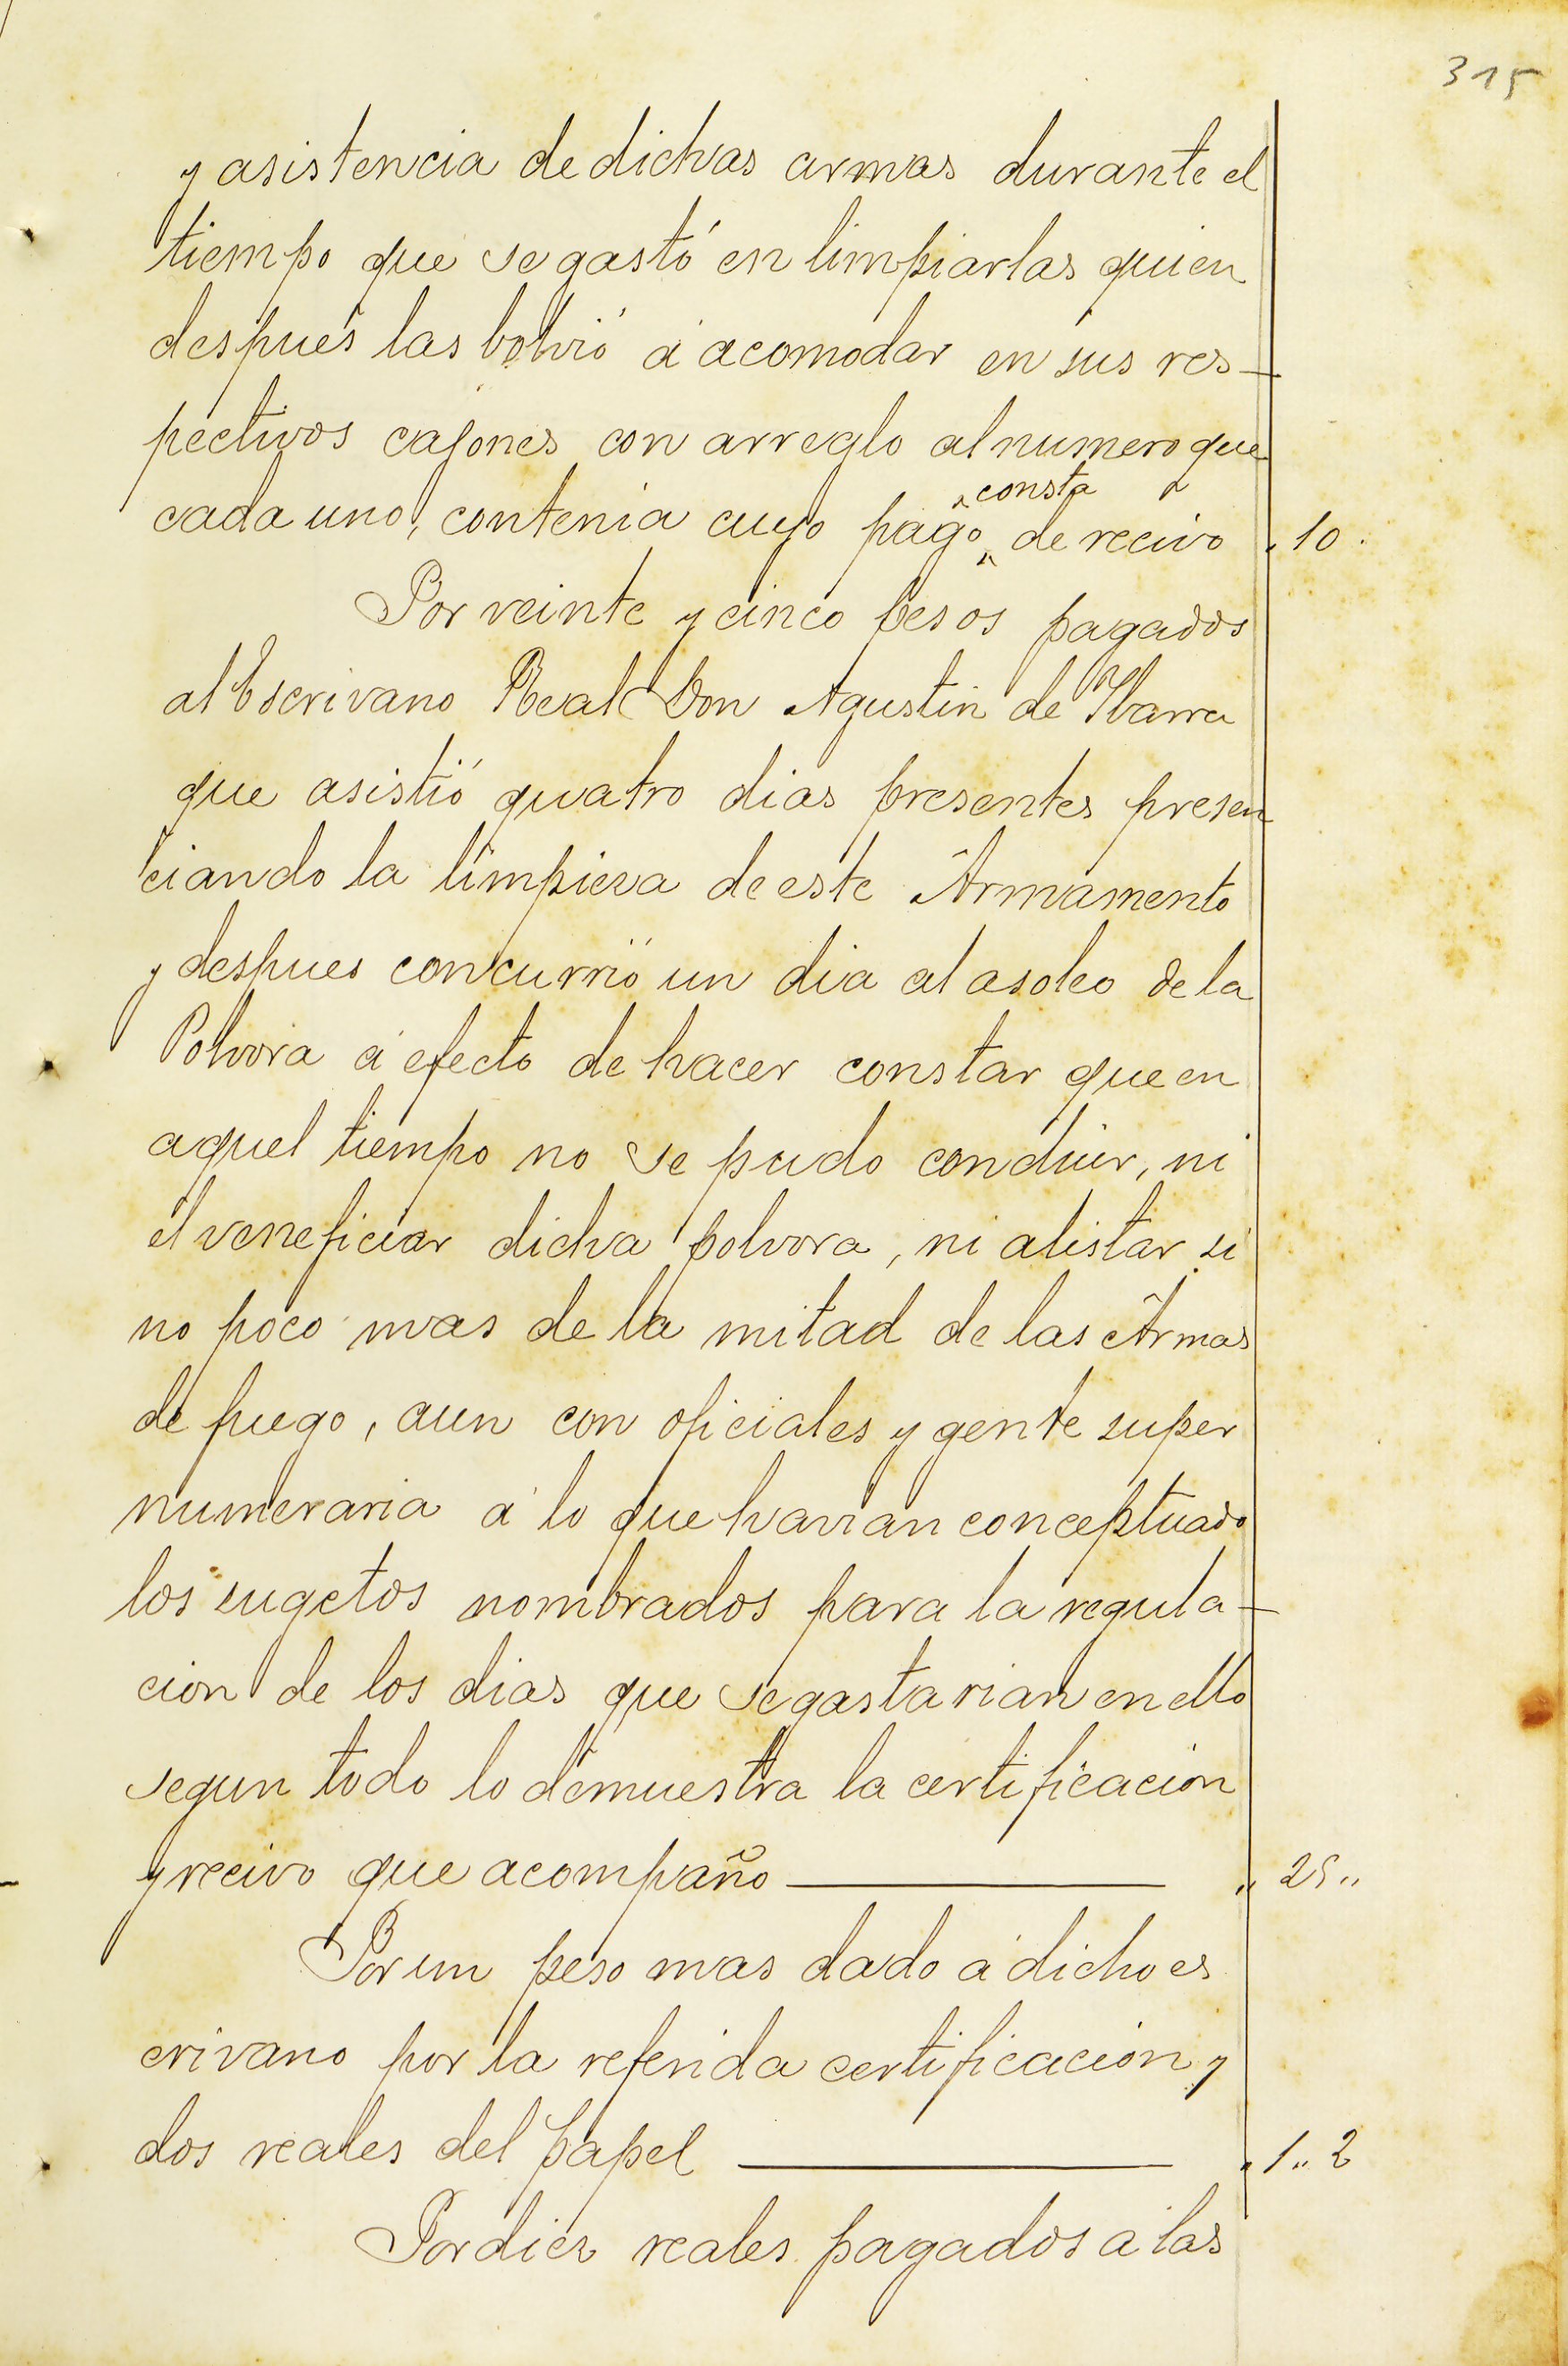 315
y asistencia de dichas armas durante el
tiempo que se gastó en limpiarlas quien
despues las bolvió á acomodar en sus res-
pectivos cajones con arreglo al numero que
cada uno, contenia cuyo pago consta de recivo „10.
Por veinte y cinco pesos pagados
al Escrivano Real Don Agustin de Ibarra
que asistió quatro dias presentes presen
ciando la limpieza de este Armamento
y despues concurrió un dia al asoleo de la
Polvora á efecto de hacer constar que en
aquel tiempo no se pudo concluir, ni
el veneficiar dicha polvora, ni alistar si
no poco mas de la mitad de las Armas
de fuego, aun con oficiales y gente super
numeraria á lo que havian conceptuado
los sugetos nombrados para la regula-
cion de los dias que se gastarian en ello
segun todo lo demuestra la certificacion
y recivo que acompaño — „ 25 „
Por un peso mas dado á dicho es
crivano por la referida certificacion y
dos reales del papel — „ 1 „ 2
Por diez reales pagados a las